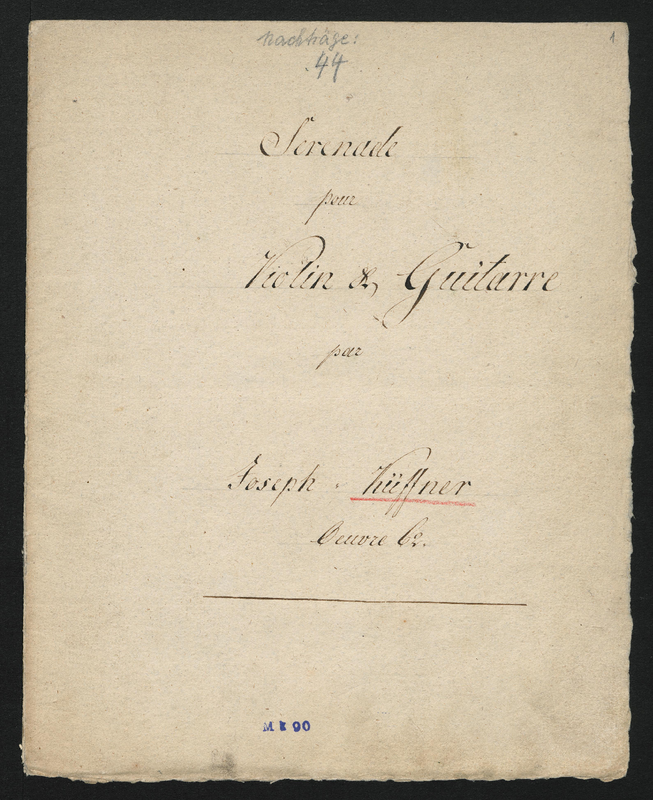 Nachträge:
44
1
Serenade
pour
Violin & Guitarre
par
Joseph Küffner
Oeuvre 62.
M k 90